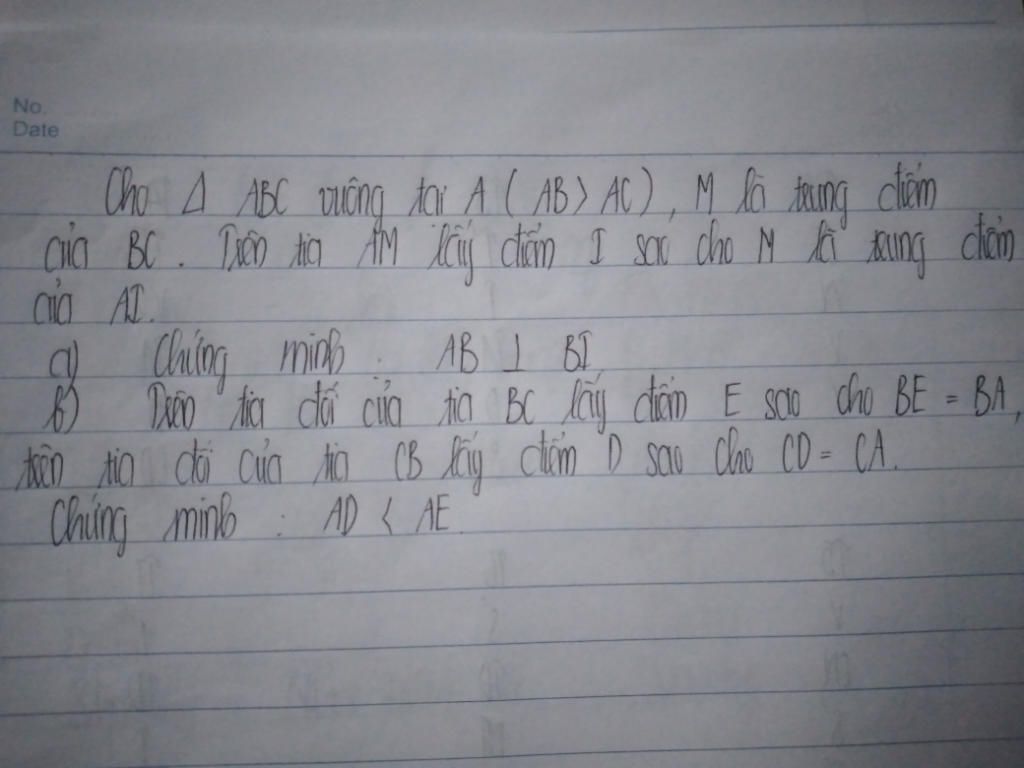 No.
Date
Cho Δ ABC vuông tại A ( AB > AC ), M là trung điểm
của BC. Trên tia AM lấy điểm I sao cho M là trung điểm
của AI.
a) Chứng minh : AB ⊥ BI
b) Trên tia đối của tia BC lấy điểm E sao cho BE = BA,
trên tia đối của tia CB lấy điểm D sao cho CD = CA.
Chứng minh : AD < AE.